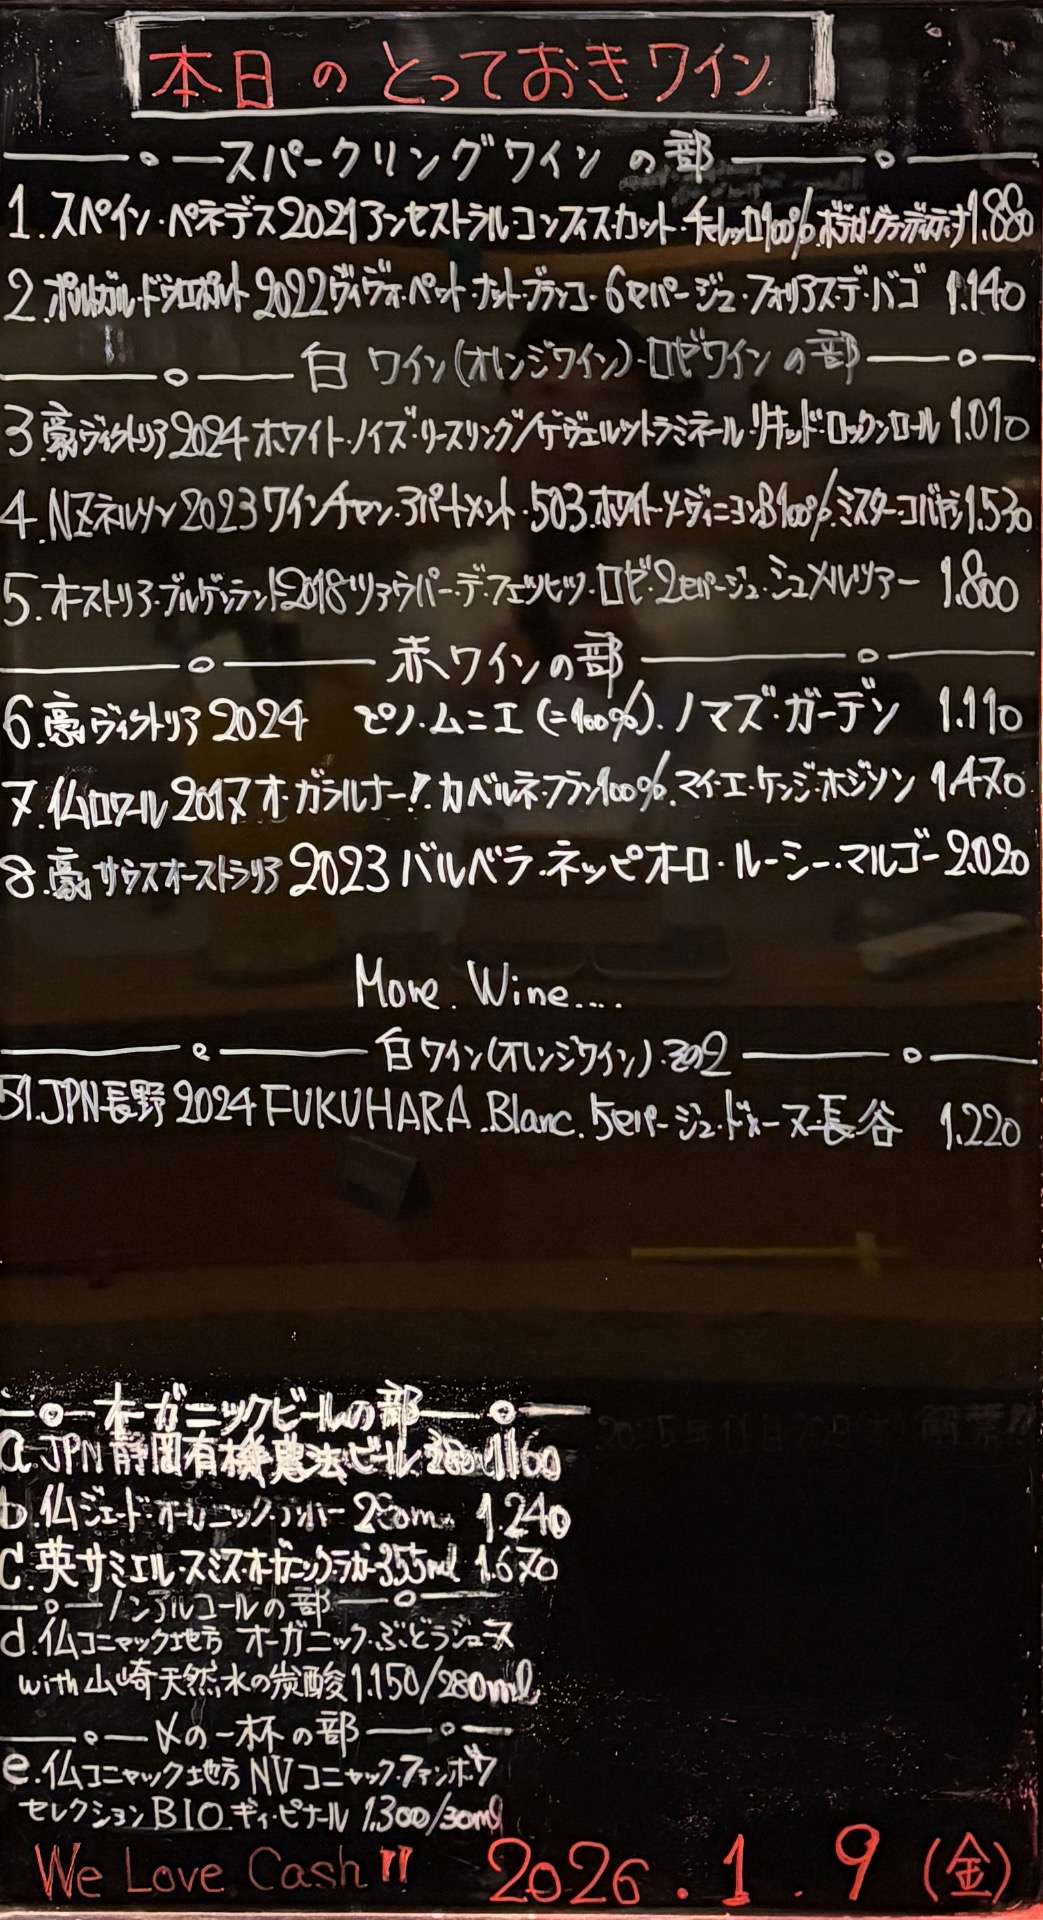 本日のとっておきワイン
スパークリングワインの部
1.スペイン・ペネデス2021アンセストラル・コンフィスカット・チャレッロ100%.ボデガ・グラン 1.880
2.ポルトガル・ドウロポルト2022ヴィヴォ・ペット・ナット・ブランコ・6セパージュ・フォリアス・デ・バゴ 1.140
白ワイン(オレンジワイン)・ロゼワインの部
3.豪ヴィクトリア2024ホワイト・ノイズ・リースリング/ゲヴェルットラミネール・リキッド・ロックンロール 1.010
4.NZネルソン2023ワインチャン・アパートメント・503.ホワイト・ソーヴィニヨンB100%.ミスター・コバヤシ 1.530
5.オーストリア・ブルゲンラント2018ツァウバー・デ・フェツヒツ・ロゼ・2セパージュ・シュメルツァー 1.800
赤ワインの部
6.豪ヴィクトリア2024 ピノ・ムニエ(=100%).ノマズ・ガーデン 1.110
7.仏ロワール2017オ・ガラルナー!カベルネ・フラン100%.マイ・エ・ケンジ・ホジソン 1.470
8.豪サウスオーストラリア2023バルベラ・ネッビオーロ・ルーシー・マルゴー 2.020
More. Wine....
白ワイン(オレンジワイン).その2
51.JPN長野2024FUKUHARA.Blanc.5セパージュ・ドメーヌ・長谷 1.220
オーガニックビールの部
a.JPN静岡有機農法ビール 1160
b.仏ジェード・オーガニック・アンバー 250ml 1.240
c.英サミエル・スミス・オーガニック・ラガー355ml 1.670
ノンアルコールの部
d.仏コニャック地方 オーガニック・ぶどうジュース
with山崎天然水の炭酸1.150/280ml
〆の一杯の部
e.仏コニャック地方NVコニャック・ファンボワ
セレクションBIO.ギィ・ピナール 1.300/30ml
We Love Cash!! 2026.1.9(金)